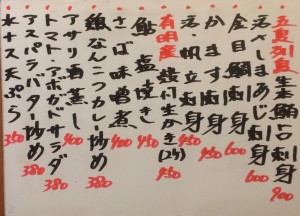 五島列島生本鮪刺身 900
活〆しまあじ刺身 600
金目鯛刺身 600
かます刺身 450
活・帆立刺身 450
有明産 殻付生かき(2ケ) 450
鮎塩焼き 450
さば味噌煮 400
なんこつカレー炒め 380
アサリ酒蒸し 400
トマト・アボガドサラダ 380
アスパラバター炒め 380
水ナス天ぷら 350